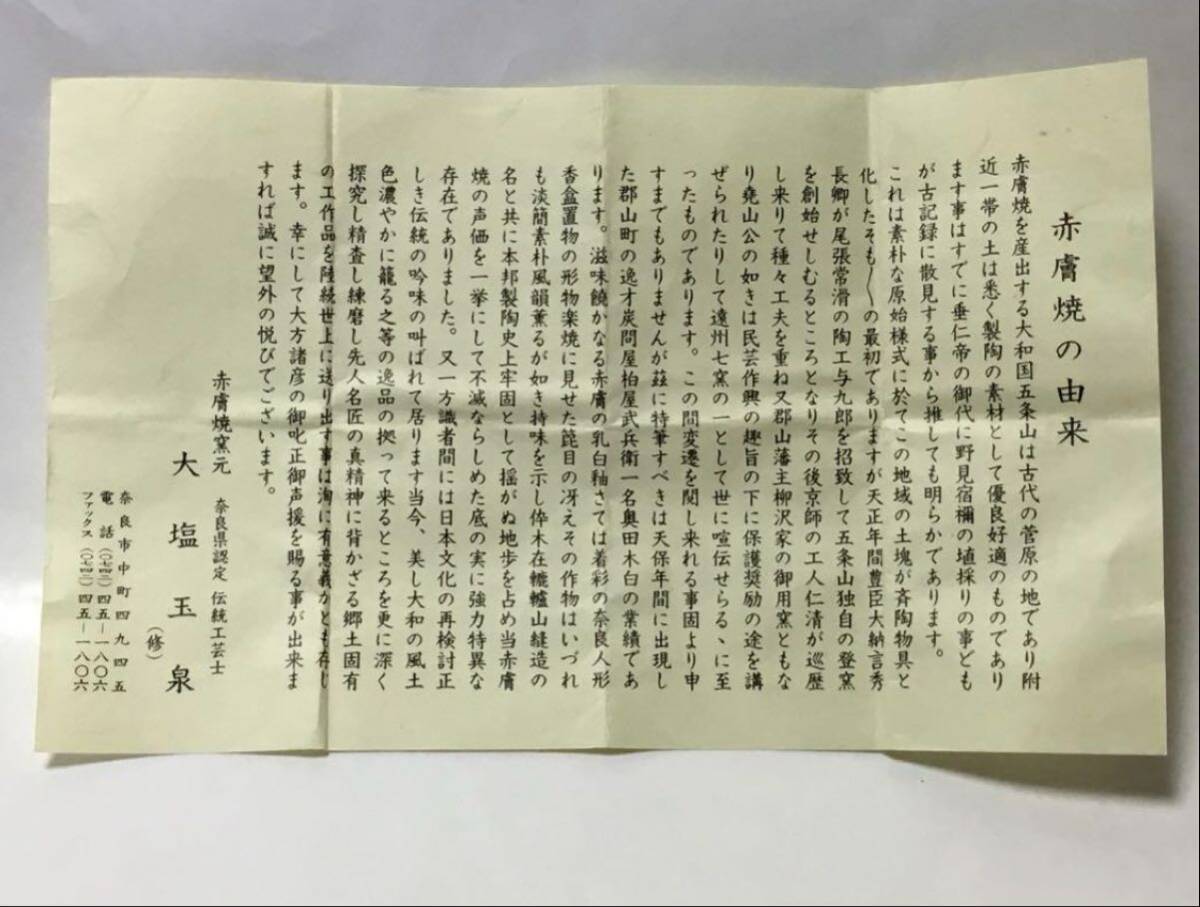 赤膚焼の由来
赤膚焼を産出する大和国五条山は古代の菅原の地であり附
近一帯の土は悉く製陶の素材として優良好適のものであり
ます事はすでに垂仁帝の御代に野見宿禰の埴採りの事ども
が古記録に散見する事から推しても明らかであります。
これは素朴な原始様式に於てこの地域の土塊が斉陶物具と
化したそも〳〵の最初でありますが天正年間豊臣大納言秀
長卿が尾張常滑の陶工与九郎を招致して五条山独自の登窯
を創始せしむるところとなりその後京師の工人仁清が巡歴
し来りて種々工夫を重ね又郡山藩主柳沢家の御用窯ともな
り堯山公の如きは民芸作興の趣旨の下に保護奨励の途を講
ぜられたりして遠州七窯の一として世に喧伝せらるゝに至
ったものであります。この間変遷を関し来れる事固より申
すまでもありませんが茲に特筆すべきは天保年間に出現し
た郡山町の逸才炭問屋柏屋武兵衛一名奥田木白の業績であ
ります。滋味饒かなる赤膚の乳白釉さては着彩の奈良人形
香盒置物の形物楽焼に見せた箆目の冴えその作物はいづれ
も淡簡素朴風韻薫るが如き持味を示し倅木在轆轤山縫造の
名と共に本邦製陶史上牢固として揺がぬ地歩を占め当赤膚
焼の声価を一挙にして不滅ならしめた底の実に強力特異な
存在でありました。又一方識者間には日本文化の再検討正
しき伝統の吟味の叫ばれて居ります当今、美し大和の風土
色濃やかに籠る之等の逸品の拠って来るところを更に深く
探究し精査し練磨し先人名匠の真精神に背かざる郷土固有
の工作品を陸続世上に送り出す事は洵に有意義かとも存じ
ます。幸にして大方諸彦の御叱正御声援を賜る事が出来ま
すれば誠に望外の悦びでございます。
赤膚焼窯元 奈良県認定 伝統工芸士
大塩玉泉
(修)
奈良市中町四九四五
電話(〇七四二)四五－一八〇六
ファックス(〇七四二)四五－一八〇六